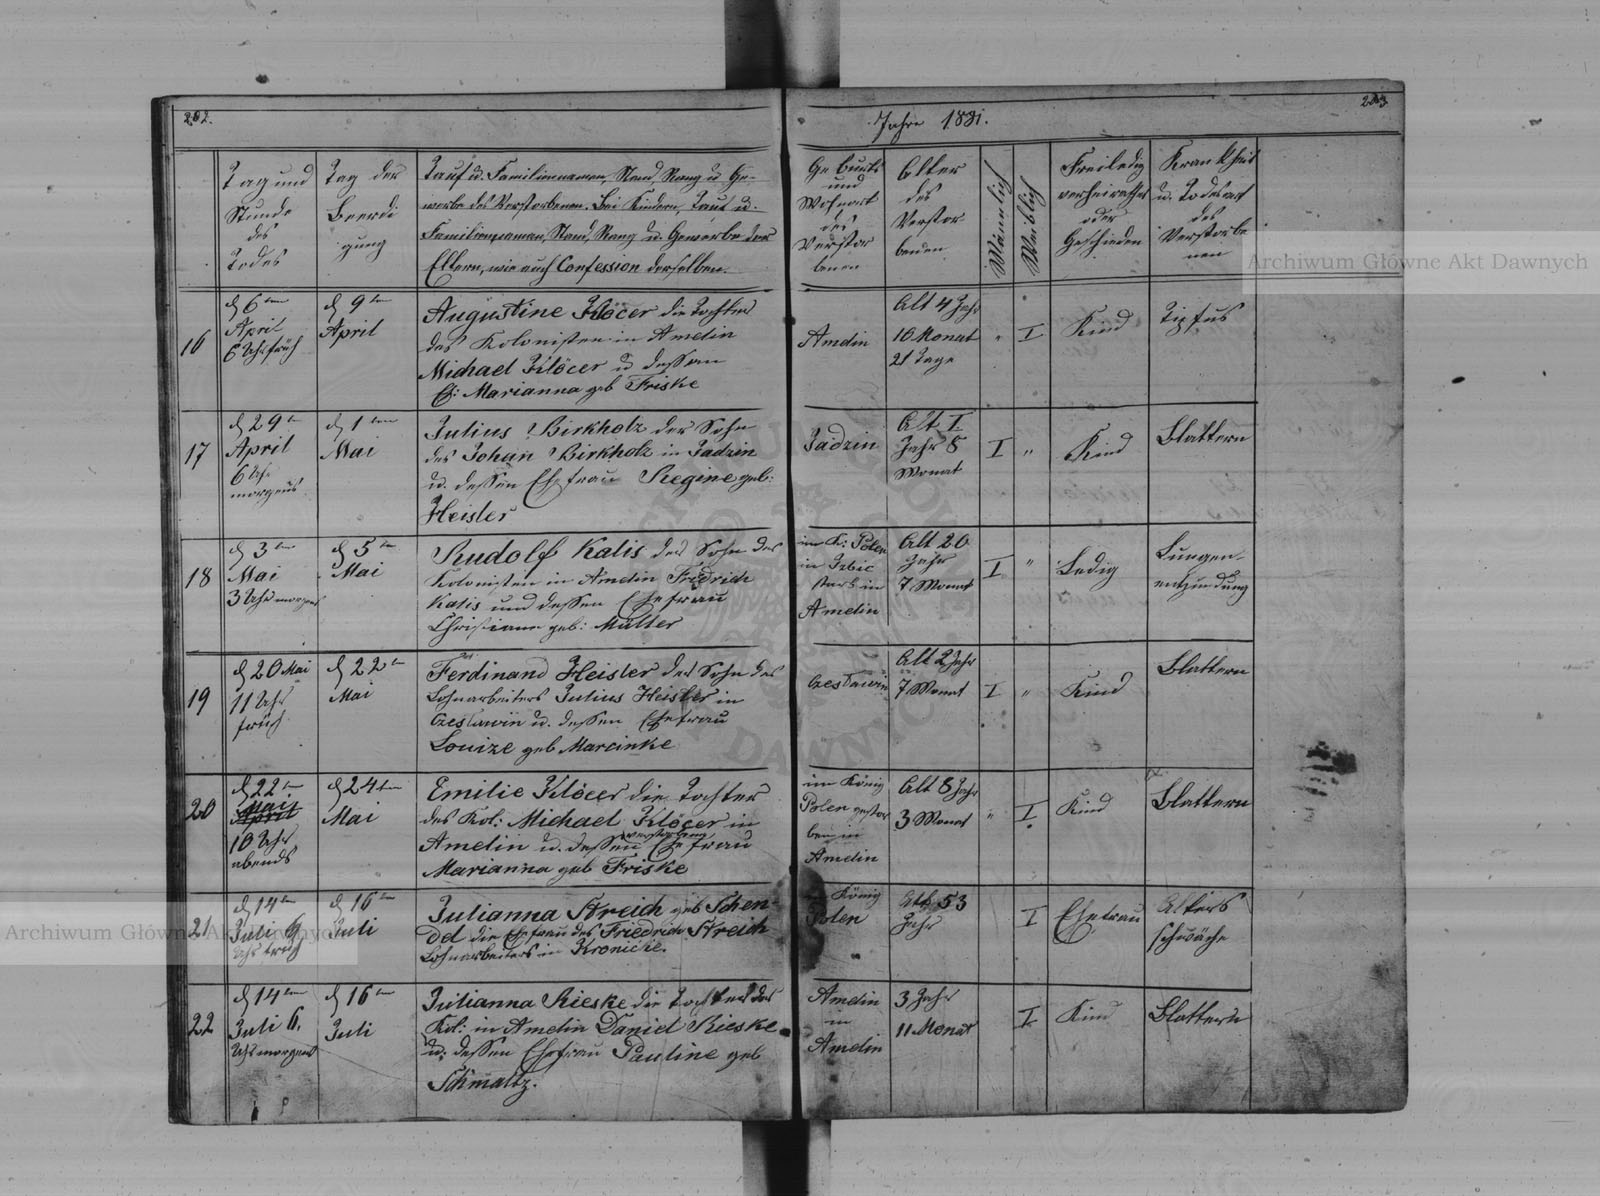 202.
Jahre 1881.
203
Tag und
Stunde
des
Todes
Tag der
Beerdi
gung
Tauf u. Familiennamen, Stand Rang u Ge-
werbe des Verstorbenen. Bei Kindern, Tauf u.
Familiennamen, Stand, Rang u. Gewerbe der
Eltern, wie auch Confession derselben.
Geburts
und
Wohnort
des
Verstor
benen
Alter
des
Verstor
benen
Mänlich
Weiblich
Freiledig
verheirathet
oder
Geschieden
Krankheit
u. Todesart
des
Verstorbe
nen
16
d 6ten
April
6 Uhr früh
d 9ten
April
Augustine Klöcer die Tochter
des Kolonisten in Amelin
Michael Klöcer u dessen
Ef: Marianna geb Friske
Amelin
Alt 4 Jahr
10 Monat
21 Tage
" I
Kind
Tipfus
17
d 29ten
April
6 Uhr
morgens
d 1ten
Mai
Julius Birkholz der Sohn
des Johan Birkholz in Zadzin
u. dessen Ehefrau Regine geb:
Heisler
Zadzin
Alt I
Jahr 8
Monat
I "
Kind
Blattern
18
d 3ten
Mai
3 Uhr morgens
d 5ten
Mai
Rudolf Kalis der Sohn des
Kolonisten in Amelin Fridrich
Kalis und dessen Ehefrau
Christiane geb: Müller
im K: Polen
in Izbic
starb in
Amelin
Alt 20
Jahr
7 Monat
I "
Ledig
Lungen-
entzündung
19
d 20 Mai
11 Uhr
früh
d 22ten
Mai
Ferdinand Heisler der Sohn des
Lohnarbeiters Julius Heisler in
Czeslawin u. dessen Ehefrau
Louize geb Marcinke
Czeslawin
Alt 2 Jahr
7 Monat
I "
Kind
Blattern
20
d 22ten
Mai
April
10 Uhr
abends
d 24ten
Mai
Emilie Klöcer die Tochter
des Kol: Michael Klöcer in
Amelin u. dessen verstorbene Ehefrau
Marianna geb Friske
im König
Polen gestor
ben in
Amelin
Alt 8 Jahr
3 Monat
" I.
Kind
Blattern
21
d 14ten
Juli 6
Uhr früh
d 16ten
Juli
Julianna Streich geb Schen-
del die Ehefrau des Friedrich Streich
Lohnarbeiters in Kronicke.
König
Polen
Alt 53
Jahr
I
Ehefrau
Alters
schwäche
22
d 14ten
Juli 6.
Uhr morgens
d 16ten
Juli
Julianna Rieske die Tochter des
Kol: in Amelin Daniel Rieske
u. dessen Ehefrau Pauline geb
Schmaltz.
Amelin
in
Amelin
3 Jahr
11 Monat
I
Kind
Blattern
Archiwum Główne Akt Dawnych
Archiwum Główne Akt Dawnych